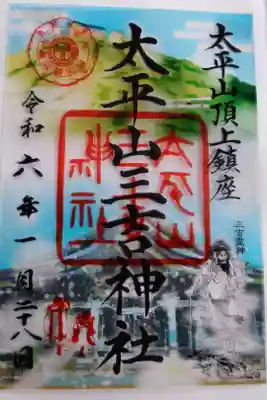 太平山頂上鎮座
太平山三吉神社
令和六年一月二十八日
三吉霊神